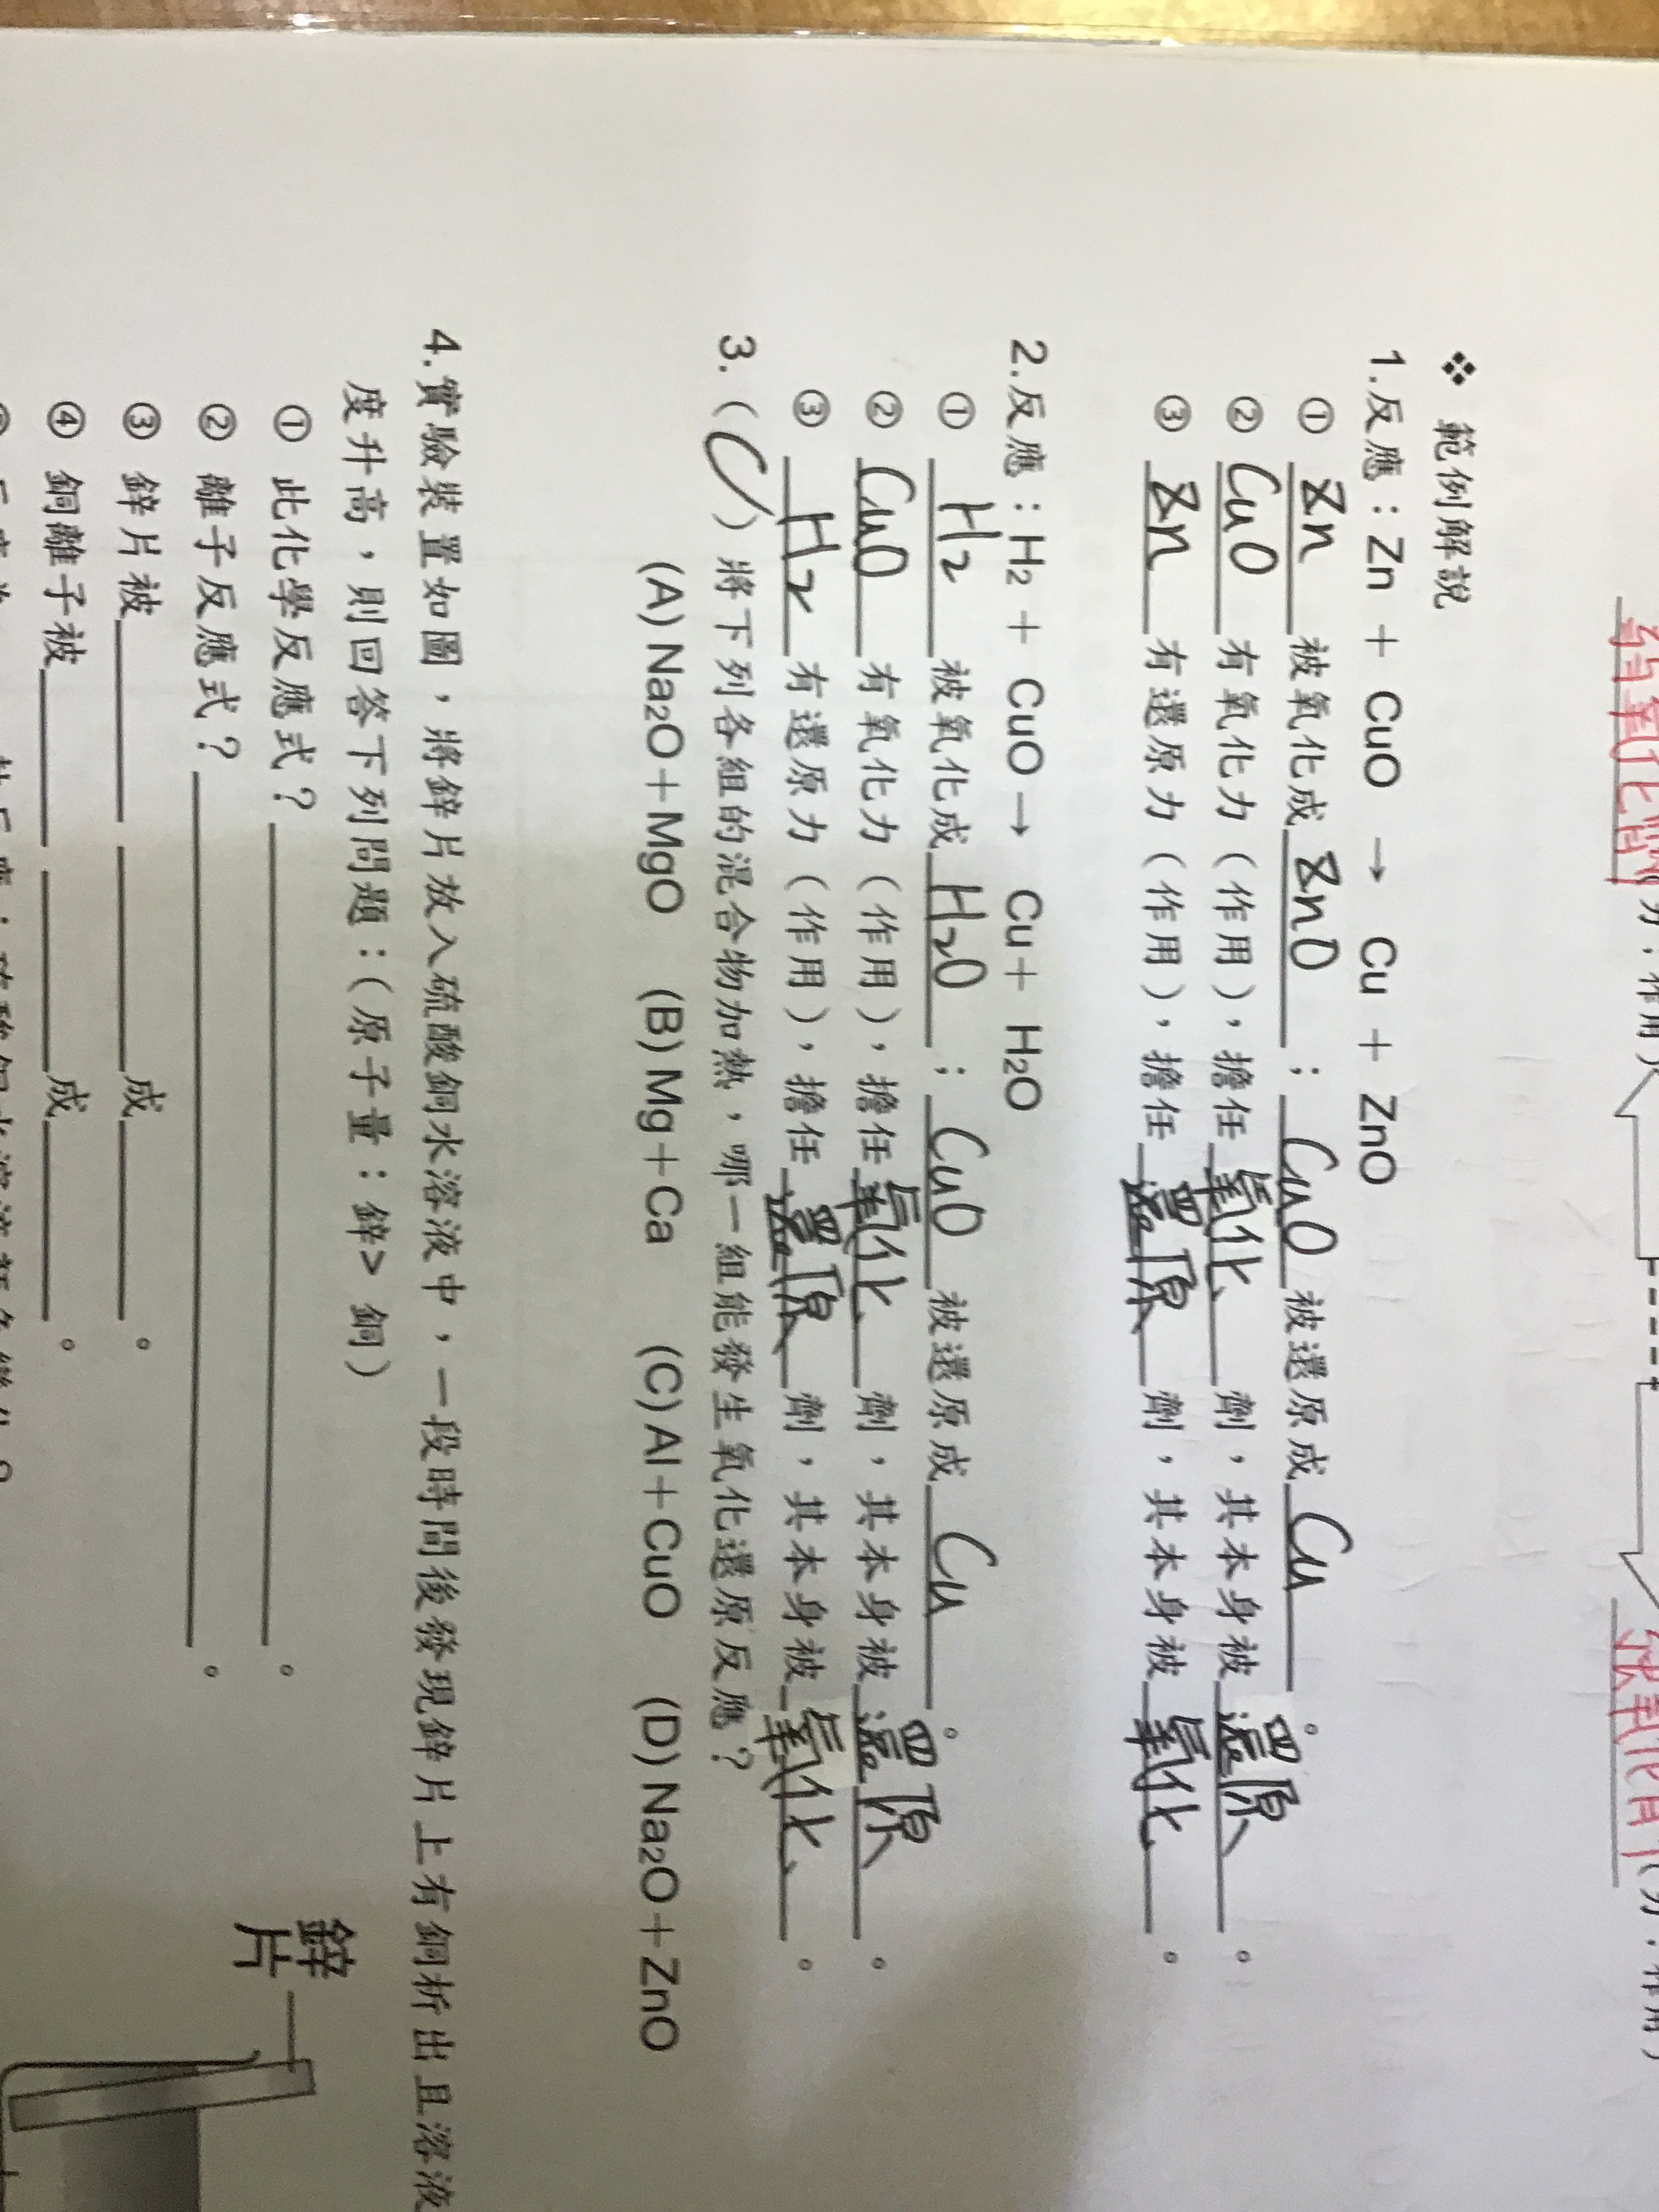 給氧化劑
奪氧化劑
❖ 範例解說
1.反應：Zn + CuO → Cu + ZnO
① Zn 被氧化成 ZnO ； CuO 被還原成 Cu 。
② CuO 有氧化力（作用），擔任 氧化 劑，其本身被 還原 。
③ Zn 有還原力（作用），擔任 還原 劑，其本身被 氧化 。
2.反應：H₂ + CuO → Cu + H₂O
① H₂ 被氧化成 H₂O ； CuO 被還原成 Cu 。
② CuO 有氧化力（作用），擔任 氧化 劑，其本身被 還原 。
③ H₂ 有還原力（作用），擔任 還原 劑，其本身被 氧化 。
3.（C）將下列各組的混合物加熱，哪一組能發生氧化還原反應？
(A) Na₂O＋MgO (B) Mg＋Ca (C) Al＋CuO (D) Na₂O＋ZnO
4.實驗裝置如圖，將鋅片放入硫酸銅水溶液中，一段時間後發現鋅片上有銅析出且溶液
度升高，則回答下列問題：（原子量：鋅> 銅）
① 此化學反應式？ 。
② 離子反應式？ 。
③ 鋅片被 成 。
④ 銅離子被 成 。
鋅片